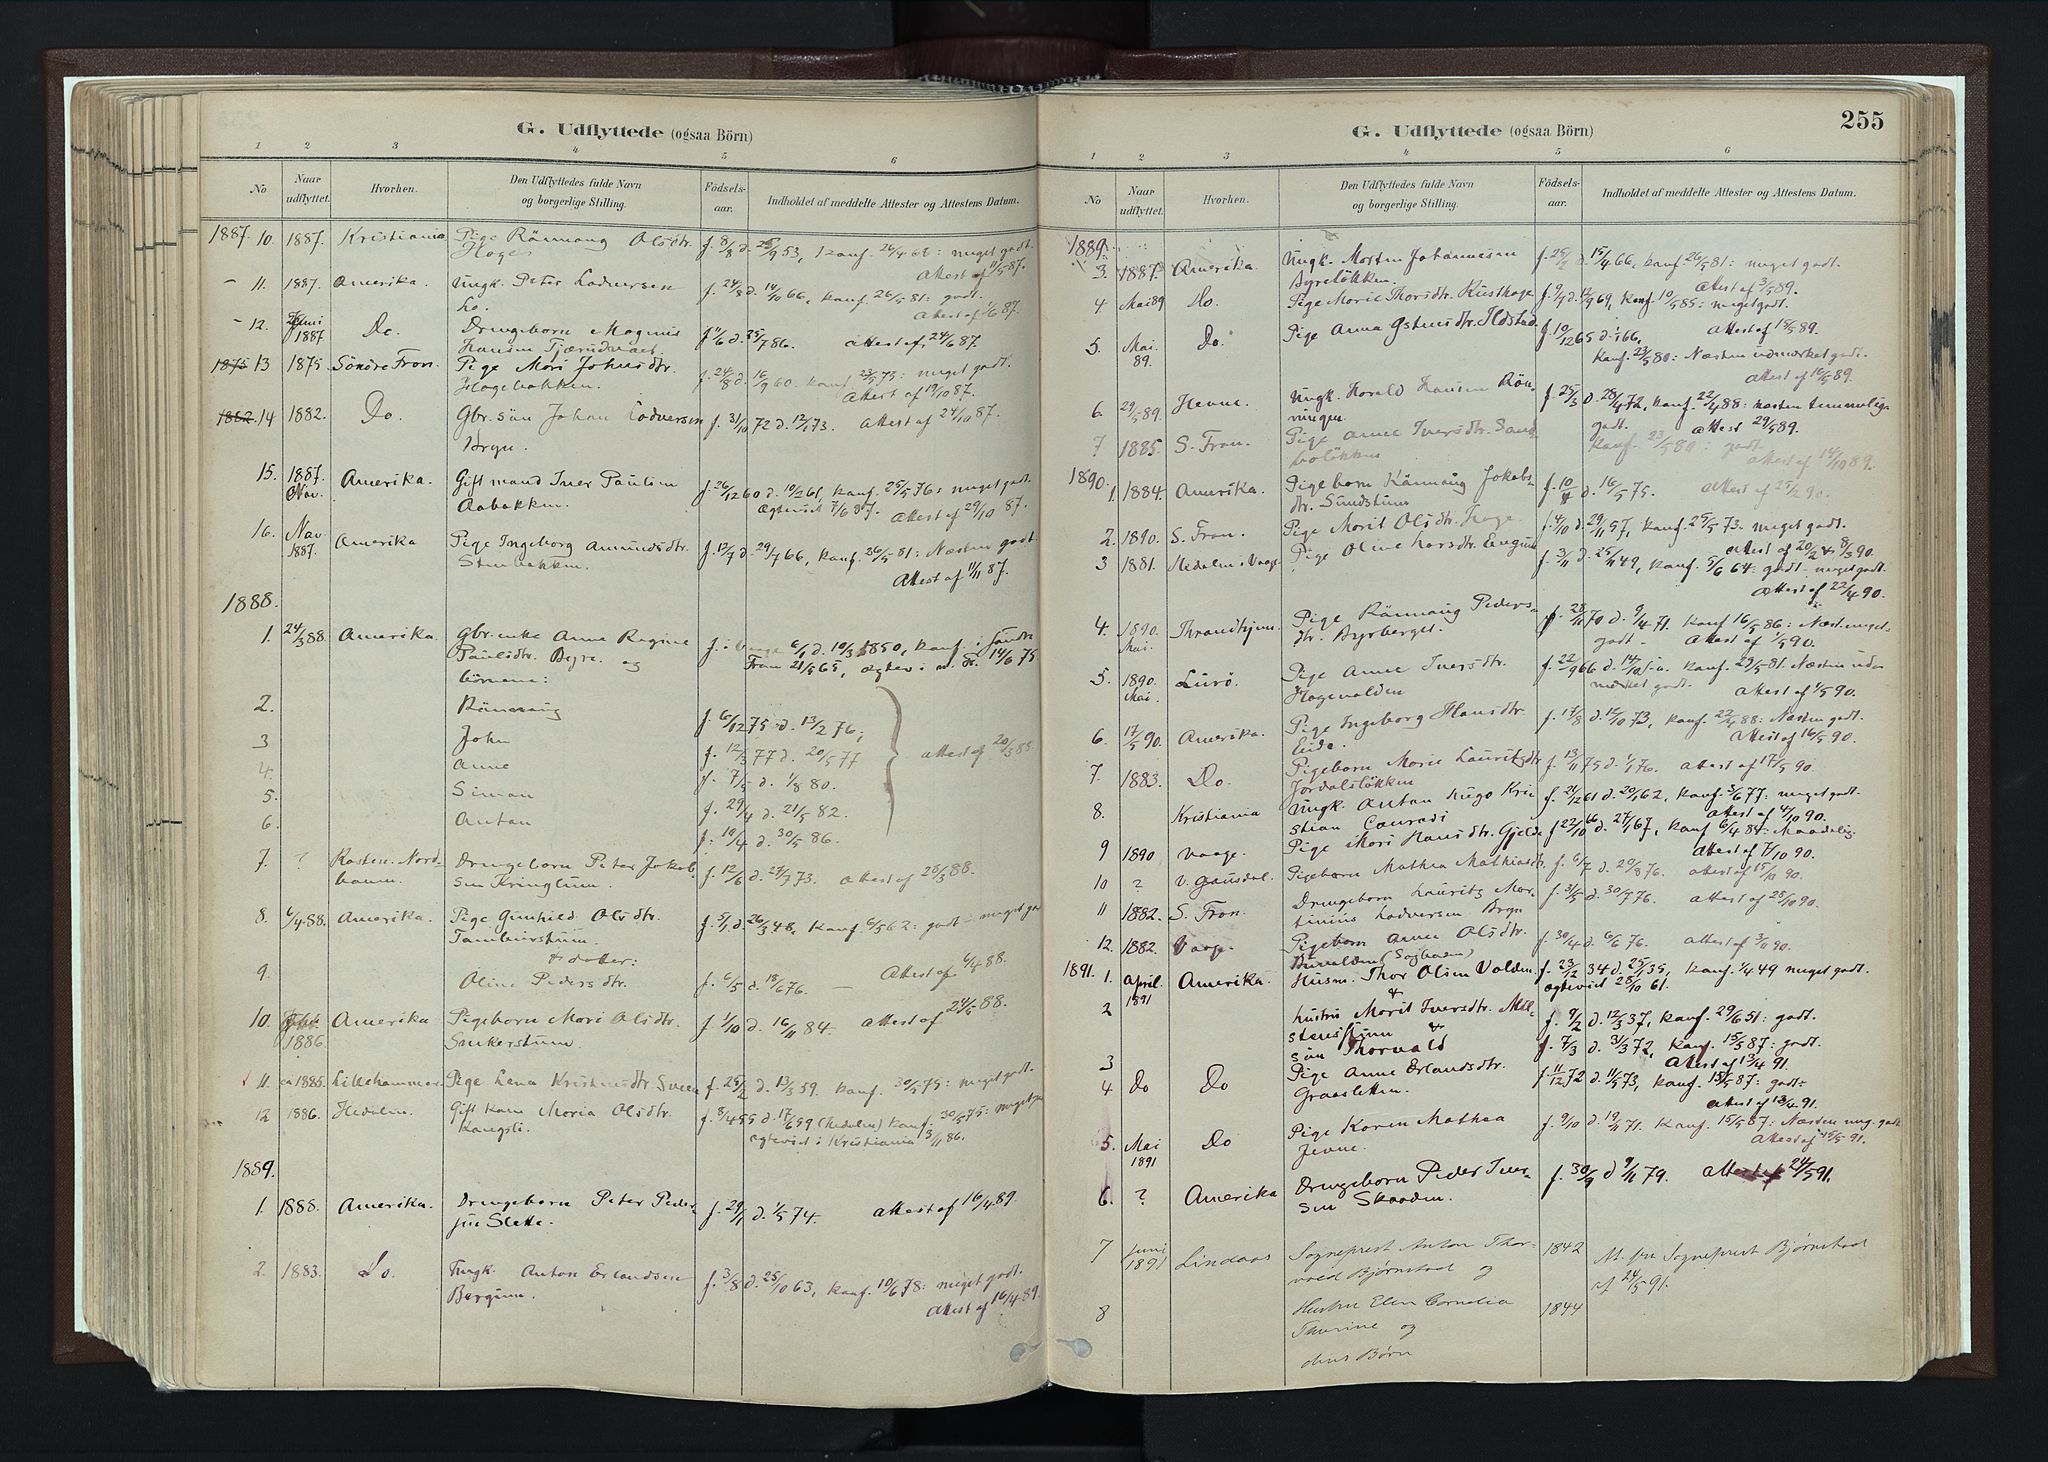 G. Udflyttede (ogsaa Börn)
1 2 3 4 5 6
No Naar udflyttet. Hvorhen. Den Udflyttedes fulde Navn og borgerlige Stilling. Födsels-aar. Indholdet af meddelte Attester og Attestens Datum.
1887. 10. 1887. Kristiania Pige Rönnaug Olsdtr. f. 8/8 d. 25/9 53, konf. 26/4 68: meget godt.
Hage Attest af 11/5 87.
- 11. 1887. Amerika. Ungk. Peter Lodversen f. 24/8 d. 14/10 66, konf. 26/5 81: godt.
Lo. Attest af 1/6 87.
- 12. Juni 1887 Do. Drengebarn Magnus f. 11/6 d. 25/7 86. Attest af 24/6 87.
Hansen
1875 13 1875 Söndre Fron. Pige Mari Johnsdtr. f. 24/8 d. 16/9 60. konf. 23/5 75: meget godt.
Hagebakken. Attest af 19/10 87.
1882. 14 1882. Do. Gbr. sön Johan Lodversen f. 31/10 72 d. 12/1 73. Attest af 24/10 87.
Bryn.
15. 1887. Nov. Amerika. Gift mand Iver Paulsen f. 26/12 60 d. 10/2 61, konf. 25/5 76: meget godt.
Aabakken. Ægteviet 7/6 87. Attest af 29/10 87.
16. Nov. 1887. Amerika Pige Ingeborg Amundsdtr. f. 12/7 d. 29/7 66, konf. 26/5 81: Næsten godt.
Stenbakken. Attest af 11/11 87.
1888.
1. 24/3 88. Amerika. Gbr. enke Anne Regine f. i Vaage 6/1 d. 10/3 1850, konf. i Söndre
Paulsdtr. Byre. og Fron 21/5 65, ægtev. i N. Fr. 14/6 75
börnene:
2. Rönnaug f. 6/12 75 d. 13/2 76;
3 John f. 12/3 77 d. 20/5 77 Attest af 20/3 88.
4. Anne f. 7/5 d. 1/8 80.
5. Simen f. 29/4 d. 21/5 82.
6. Anton f. 10/4 d. 30/5 86.
7. ? Kosten. Nord- Drengebarn Peter Jakob- f. 12/6 d. 27/7 73. Attest af 28/3 88.
sen Kringlum.
8. 6/4 88. Amerika. Pige Gunhild Olsdtr. f. 5/1 d. 26/3 48, konf. 6/5 62: godt - meget godt
& dotter:
9. Oline Pedersdtr. f. 6/5 d. 18/6 76. — Attest af 6/4 88.
10. 1886. Amerika Pigebarn Mari Olsdtr. f. 1/10 d. 16/11 84. Attest af 24/5 88.
11. ca 1885. Lillehammer Pige Lena Kristensdtr. Sveen f. 25/2 d. 13/3 59. konf. 30/5 75: meget godt.
12 1886. Hedalen. Gift kone Maria Olsdtr. f. 8/4 55 d. 17/6 59 (Hedalen) konf. 30/5 75: meget godt
Kongsli. ægteviet i Kristiania 3/11 86.
1889.
1. 1888. Amerika. Drengebarn Peter Peder- f. 29/1 d. 1/5 74. Attest af 16/4 89.
sen Slette.
2. 1883. Do. Ungk. Anton Erlandsen f. 3/8 d. 25/10 63, konf. 10/6 78: meget godt.
Bergum. Attest af 16/4 89.
255
G. Udflyttede (ogsaa Börn)
1 2 3 4 5 6
No Naar udflyttet. Hvorhen. Den Udflyttedes fulde Navn og borgerlige Stilling. Födsels-aar. Indholdet af meddelte Attester og Attestens Datum.
1889.
3. 1887. Amerika. Ungk. Morten Johannesen f. 25/2 d. 15/4 66, konf. 26/5 81: meget godt.
Byrelökken. Attest af 3/5 89.
4 Mai 89 Do. Pige Marie Thorsdtr. Kusthage f. 9/9 d. 12/9 69, konf. 10/5 85: meget godt.
Attest af 15/5 89.
5. Mai 89. Do. Pige Anna Ostensdtr. Ildstad f. 10/12 65 d. 1/1 66,
konf. 23/5 80: Næsten udmærket godt.
Attest af 16/5 89.
6. 29/5 89. Hevne. Ungk. Harald Hansen Rön- f. 25/3 d. 28/4 72, konf. 22/4 88: næsten temmelig
ningen godt. Attest 29/5 89.
7 1885. S. Fron. Pige Anne Iversdtr. Sand- konf. 23/5 80: godt.
bolökken Attest af 14/10 89.
1890. 1. 1884. Amerika. Pigebarn Rönnaug Jakobs- f. 10/4 d. 16/5 75. Attest af 25/2 90.
dtr. Sundstuen
2. 1890. S. Fron. Pige Marit Olsdtr. Hage f. 4/10 d. 29/11 57, konf. 25/5 73. meget godt.
Attest af 20/2 & 8/3 90.
3 1881. Hedalen i Vaage Pige Oline Larsdtr. Engum f. 3/11 d. 25/11 49, konf. 5/6 64: godt - meget godt.
Attest af 22/4 90.
4. 1890. Mai. Throndhjem. Pige Rönnaug Peders- f. 28/11 70 d. 9/4 71. konf. 16/5 86: Næst. meget
dtr. Byrberget. godt - Attest af 1/5 90.
5. 1890. Mai Lurö. Pige Anne Iversdtr. f. 22/9 66 d. 14/10 s. a. konf. 29/5 81. Næsten ud-
Hagevolden mærket godt. Attest af 1/5 90.
6. 17/5 90. Amerika. Pige Ingeborg Hansdtr. f. 17/8 d. 12/10 73, konf. 22/4 88: Næsten godt.
Eide. Attest af 16/5 90.
7. 1883. Do. Pigebarn Marie Lauritzdtr f. 13/11 75 d. 1/1 76. Attest af 17/5 90.
Jordalslökken
8. Kristiania Ungk. Anton Hugo Kri- f. 21/12 61 d. 20/1 62, konf. 3/6 77: meget godt.
stian Conradi Attest af 4/10 90.
9 1890 Vaage. Pige Mari Hansdtr. Gjelde f. 22/10 66 d. 27/1 67, konf. 6/4 84: Maadelig
Attest af 7/10 90.
10 ? V. Gausdal. Pigebarn Mathea Mathiasdtr. f. 6/7 d. 20/8 76. Attest af 15/10 90.
11 1882. S. Fron. Drengebarn Lauritz Mar- f. 3/5 d. 30/7 76. Attest af 28/10 90.
tinius Lodversen Bryn
12. 1882. Vaage. Pigebarn Anne Olsdtr. f. 30/4 d. 6/6 76. Attest af 3/11 90.
1891. 1. April. 1891 Amerika. Husm. Thor Olsen Volden. f. 23/12 34 d. 25/1 35, konf. 1/4 49 meget godt.
&
ægteviet 28/10 61.
2 hustru Marit Iversdtr. f. 9/2 d. 12/3 37, konf. 29/6 51: godt.
&
3 sön Thorvald f. 7/3 d. 31/3 72, konf. 15/5 87: godt.
Attest af 13/4 91.
4 Do Do Pige Anne Erlandsdtr. f. 11/12 72 d. 11/5 73, konf. 15/5 87: godt.
Graasletten. Attest af 13/4 91.
5. Mai 1891 Do Pige Karen Mathea f. 9/10 d. 19/11 71. konf. 15/5 87: Næsten meg. godt
Jevne. Attest af 15/5 91.
6. ? Amerika Drengebarn Peder Iver- f. 30/9 d. 9/11 79. Attest af 24/5 91.
sen Skaaden.
7 Juni 1891 Lindaas Sogneprest Anton Thor- 1842 At. fra Sogneprest Bjørnstad
vald Bjørnstad og af 24/5 91.
8 Hustru Elen Cornelia 1844
Thurine og
deres Børn